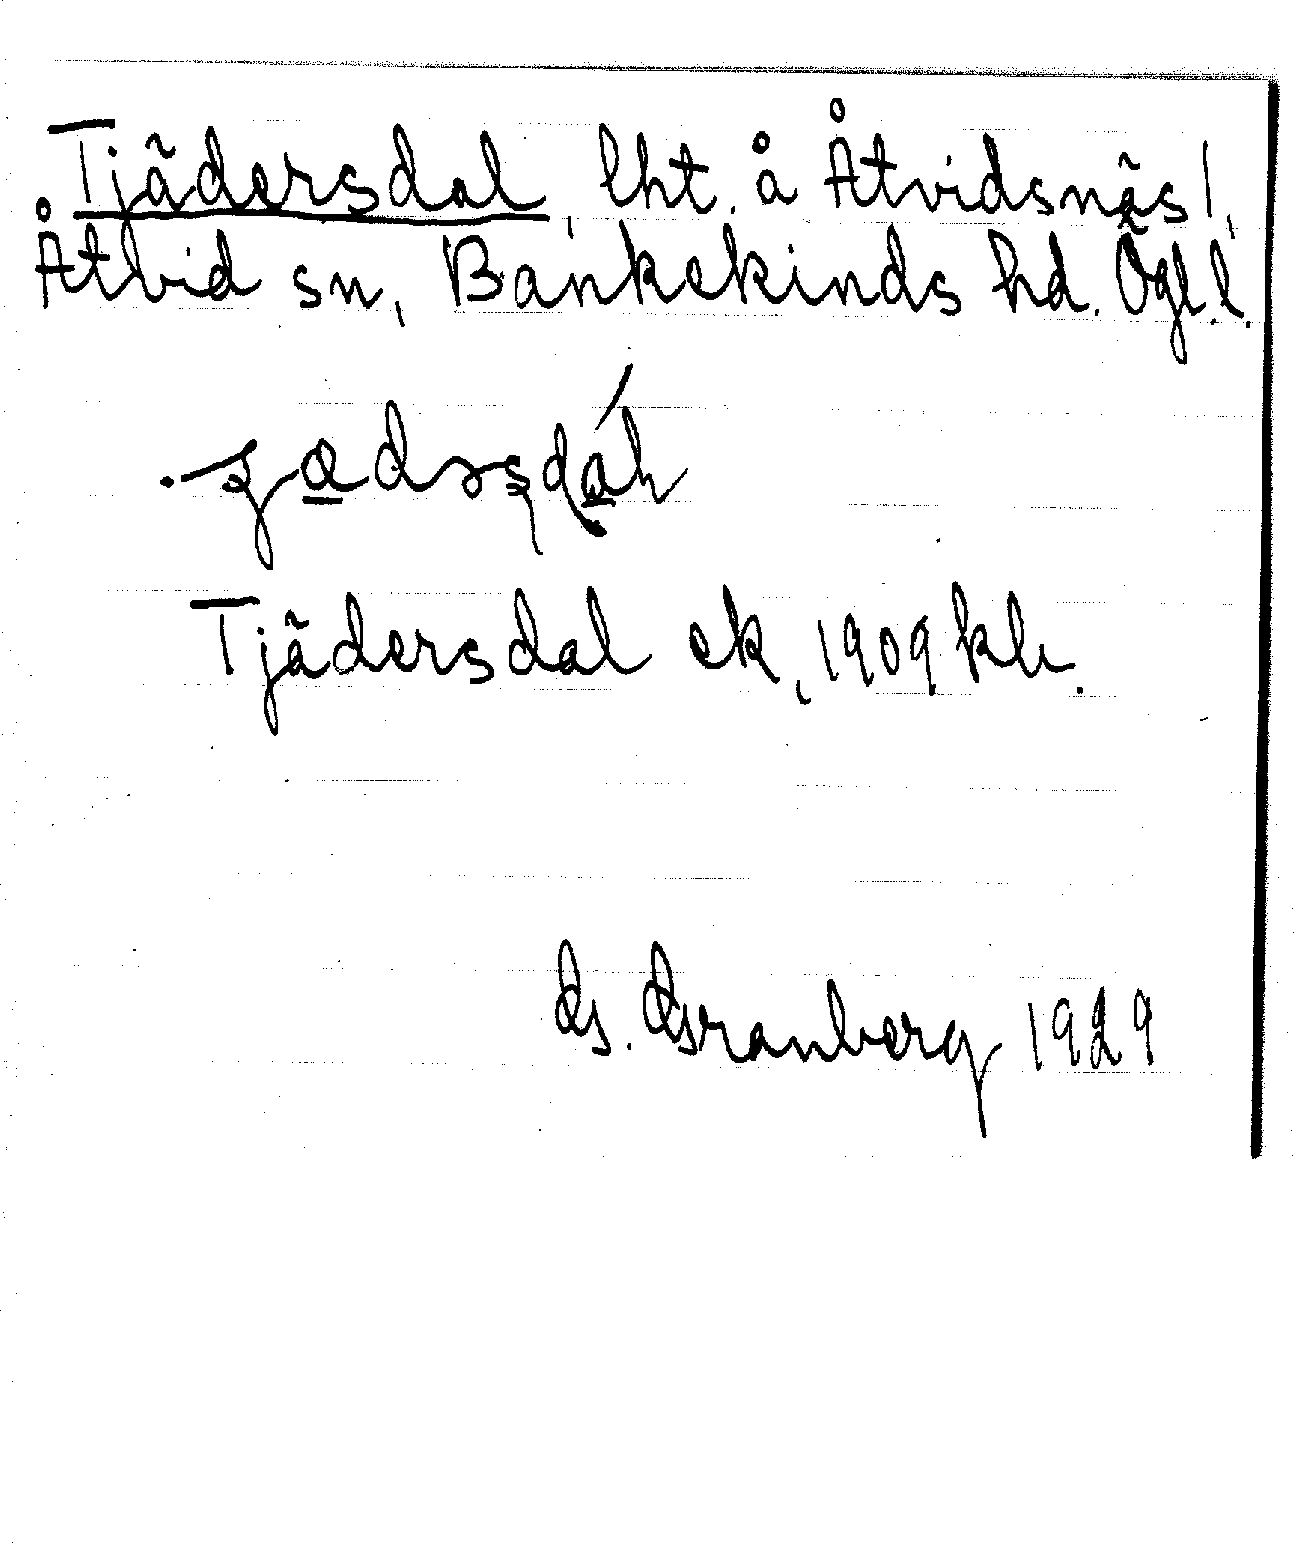 Tjädersdal, lht. å Åtvidsnäs 1,
Åtvid sn, Bankekinds hd. Ögl.l.
Tjädersdal ek, 1909 kb.
G. Granberg 1929